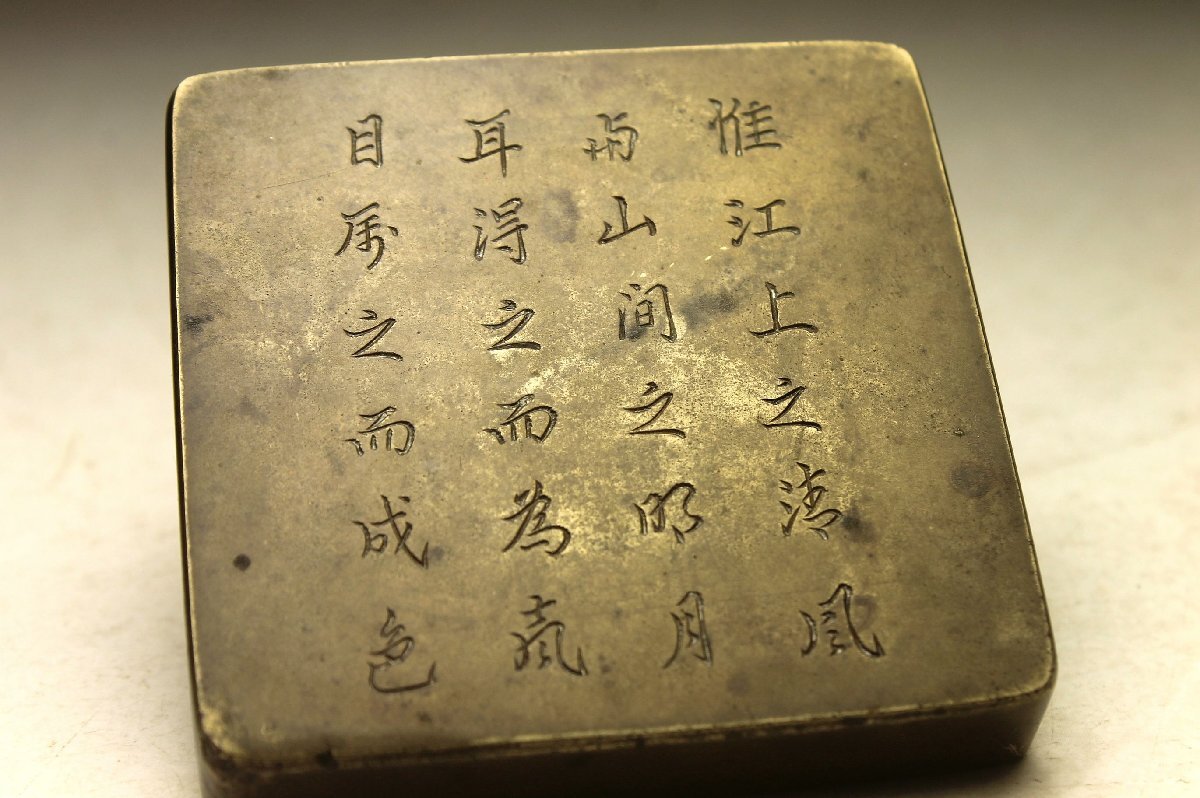 惟江上之清風
與山間之明月
耳得之而為聲
目庽之而成色